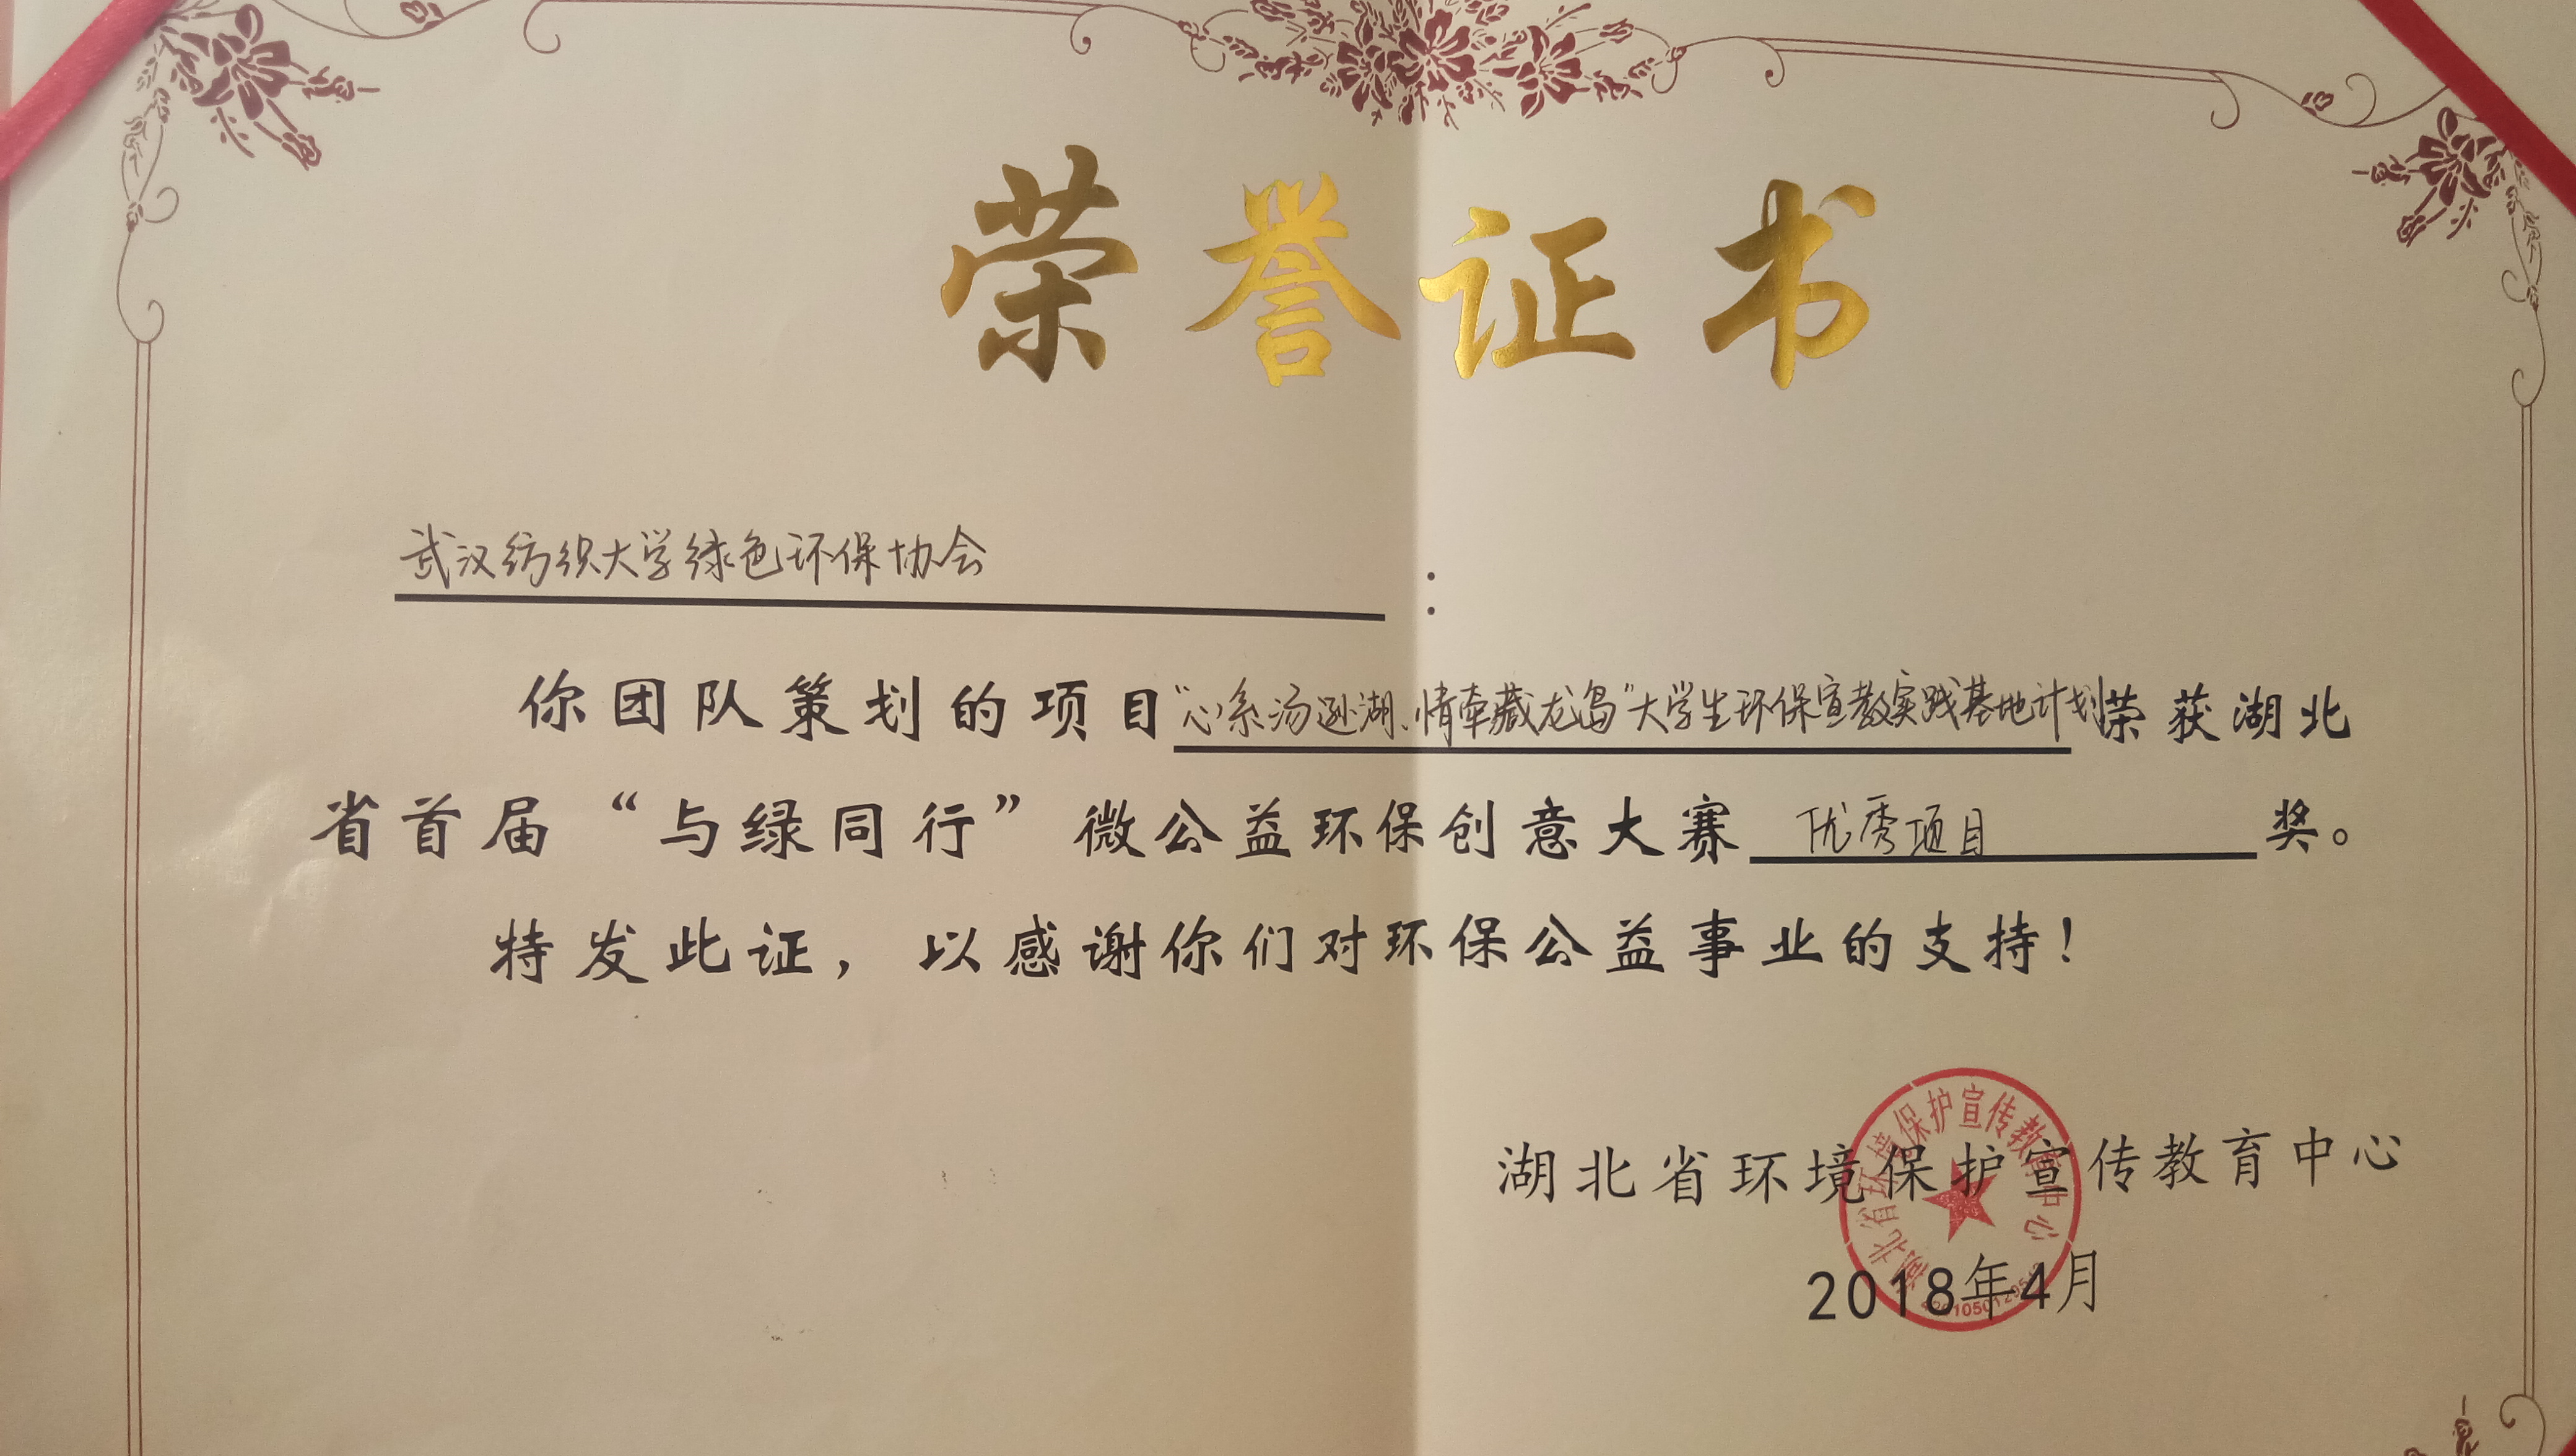 荣誉证书
武汉纺织大学绿色环保协会：
你团队策划的项目“心系汤逊湖、情牵藏龙岛”大学生环保宣教实践基地计划荣获湖北
省首届“与绿同行”微公益环保创意大赛优秀项目奖。
特发此证，以感谢你们对环保公益事业的支持！
湖北省环境保护宣传教育中心
2018年4月
湖北省环境保护宣传教育中心